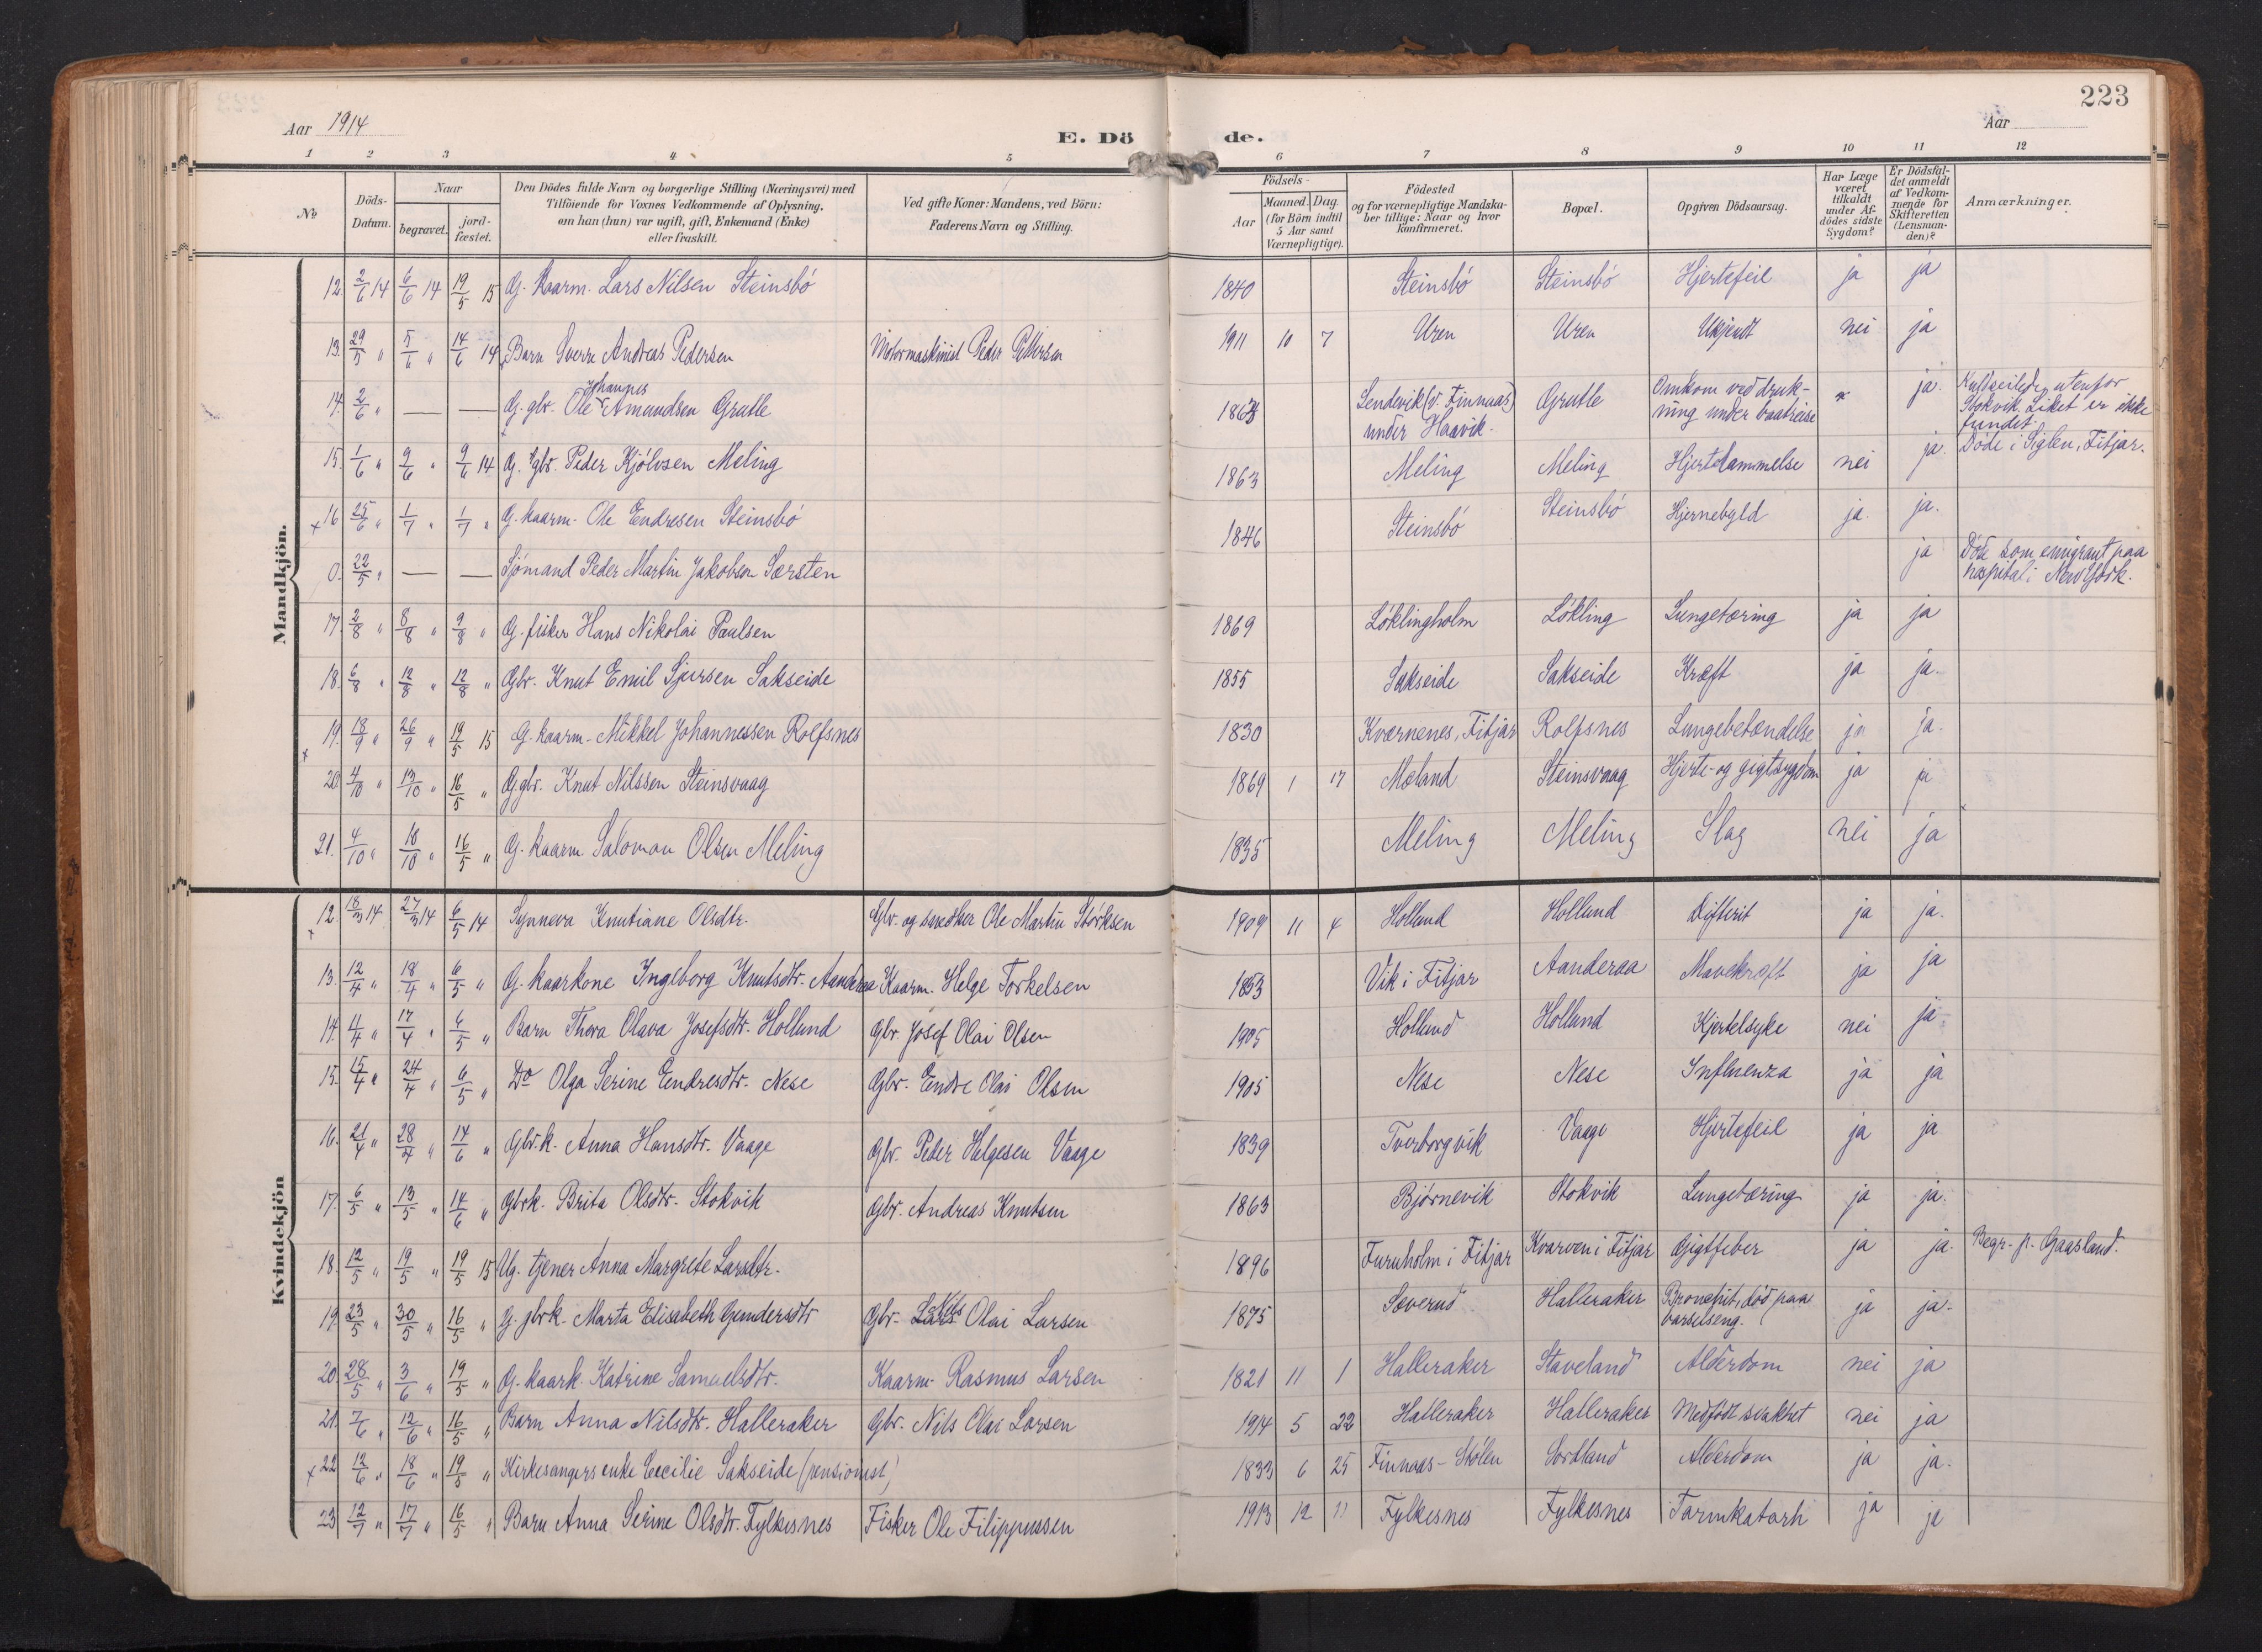 223
Aar 1914
E. Dö de.
Aar
1 2 3 4 5 6 7 8 9 10 11 12
No
Döds-Datum.
Naar
begravet.
jord-fæstet.
Den Dödes fulde Navn og borgerlige Stilling (Næringsvei) med
Tilföiende for Voxnes Vedkommende af Oplysning,
om han (hun) var ugift, gift, Enkemand (Enke)
eller fraskilt.
Ved gifte Koner: Mandens, ved Börn:
Faderens Navn og Stilling.
Födsels-
Aar
Maaned. Dag.
(for Börn indtil
5 Aar samt
Værnepligtige).
Födested
og for værnepligtige Mandska-
ber tillige: Naar og hvor
konfirmeret.
Bopæl.
Opgiven Dödsaarsag.
Har Læge
været
tilkaldt
under Af-
dödes sidste
Sygdom?
Er Dödsfal-
det anmeldt
af Vedkom-
mende for
Skifteretten
(Lensman-
den)?
Anmærkninger.
Mandkjön.
12. 2/6 14 6/6 14 19/5 15 G. kaarm. Lars Nilsen Steinsbó 1840 Steinsbó Steinsbó Hjertefeil ja ja
13. 29/5 " 5/6 " 14/6 14 Barn Sverre Andreas Pedersen Motormaskinist Peder Pettersen 1911 10 7 Uren Uren Ukjendt nei ja
14. 2/6 " — — G. gbr. Ole Johannes Amundsen Grutle Sendevik (v. Finnaas) under Haavik. Grutle Omkom ved druk-
ning under baatreise ja. Kuldseilede utenfor
Stokvik. Liket er ikke
fundet.
15. 1/6 " 9/6 " 9/6 14 G. gbr. Peder Kjólvsen Meling 1863 Meling Meling Hjertelammelse nei ja. Döde i Siglen, Fitjar.
16 25/6 " 1/7 " 1/7 " G. kaarm. Ole Endresen Steinsbó 1846 Steinsbó Steinsbó Hjernebyld ja. ja.
0. 22/5 " — — Sjömand Peder Martin Jakobsen Særsten ja Döde som emigrant paa
hospital i New York.
17. 2/8 " 8/8 " 9/8 " G. fisker Hans Nikolai Paulsen 1869 Lóklingholm Lókling Lungetæring ja ja
18. 6/8 " 12/8 " 12/8 " Gbr. Knut Emil Sjursen Sakseide 1855 Sakseide Sakseide Kræft ja ja.
19. 18/9 " 26/9 " 19/5 15 G. kaarm. Mikkel Johannessen Rolfsnes 1830 Kværnenes, Fitjar Rolfsnes Lungebetændelse ja ja.
20. 4/10 " 13/10 " 16/5 " G. gbr. Knut Nilssen Steinsvaag 1869 1 17 Mæland Steinsvaag Hjerte- og gigtsygdom ja ja
21. 4/10 " 18/10 " 16/5 " G. kaarm. Salomon Olsen Meling 1835 Meling Meling Slag nei ja
Kvindekjön
12. 18/3 14 27/3 14 6/5 14 Synneva Knutiane Olsdtr. Gbr. og snedker Ole Martin Störksen 1904 11 4 Hollund Hollund Difterit ja ja.
13. 12/4 " 18/4 " 6/5 " G. kaarkone Ingeborg Knutsdtr. Aanderaa Kaarm. Helge Torkelsen 1853 Vik i Fitjar Aanderaa Mavekræft ja ja
14. 11/4 " 17/4 " 6/5 " Barn Thora Olava Josefsdtr. Hollund Gbr. Josef Olai Olsen 1905 Hollund Hollund Kjertelsyke nei ja
15. 15/4 " 24/4 " 6/5 " Do Olga Serine Endresdtr. Nese Gbr. Endre Olai Olsen 1905 Nese Nese Influenza ja ja
16. 21/4 " 28/4 " 14/6 " Gbr.k. Anna Hansdtr. Vaage Gbr. Peder Helgesen Vaage 1839 Tverborgvik Vaage Hjertefeil ja ja
17. 6/5 " 13/5 " 14/6 " Gbrk. Brita Olsdtr. Stokvik Gbr. Andreas Knutsen 1863 Björnevik Stokvik Lungetæring ja ja.
18. 12/5 " 19/5 " 19/5 15 Ug. tjener Anna Margrete Larsdtr. 1896 Furuholm i Fitjar Kvarven i Fitjar Gigtfeber ja ja. Begr. p. Gaasland.
19. 23/5 " 30/5 " 16/5 " G. gbrk. Marta Elisabeth Gundersdtr Gbr. Lars Nils Olai Larsen 1875 Sæverud Halleraker Bronchit, död paa
barselseng. ja ja.
20. 28/5 " 3/6 " 19/5 " G. kaark. Katrine Samuelsdtr. Kaarm. Rasmus Larsen 1821 11 1 Halleraker Staveland Alderdom nei ja
21. 7/6 " 12/6 " 16/5 " Barn Anna Nilsdtr. Halleraker Gbr. Nils Olai Larsen 1914 5 22 Halleraker Halleraker Medfödt svakhet nei ja
22 12/6 " 18/6 " 19/5 " Kirkesangers enke Cecilie Sakseide (pensionist) 1833 6 25 Finnaas - Stölen Sortland Alderdom ja ja.
23 12/7 " 17/7 " 16/5 " Barn Anna Serine Olsdtr. Fylkesnes Fisker Ole Filippussen 1913 12 11 Fylkesnes Fylkesnes Tarmkatarh ja ja